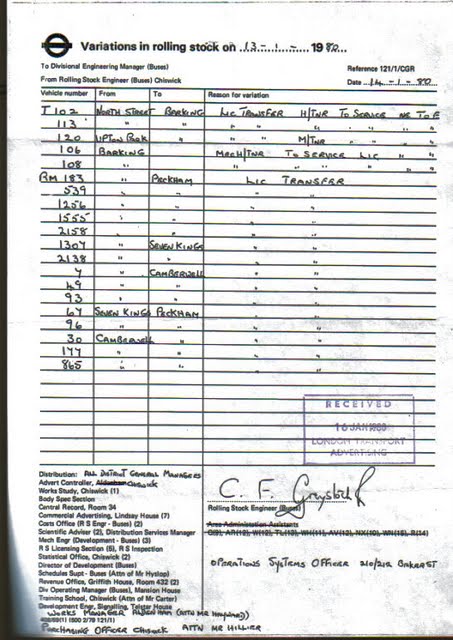 Variations in rolling stock on 13-1- 1980
To Divisional Engineering Manager (Buses)
Reference 121/1/CGR
From Rolling Stock Engineer (Buses) Chiswick
Date 14-1-80
Vehicle number From To Reason for variation
T 102 NORTH STREET BARKING LIC TRANSFER H/TNR TO SERVICE NE TO E
113 " " " " " " " " "
120 UPTON PARK " " " M/TNR " " " "
106 BARKING MECH/TNR TO SERVICE LIC " "
108 " " " " " " "
RM 183 " PECKHAM LIC TRANSFER
539 " " " "
1256 " " " "
1555 " " " "
2158 " " " "
1307 " SEVEN KINGS " "
2138 " " " "
7 " CAMBERWELL " "
49 " " " "
93 " " " "
67 SEVEN KINGS PECKHAM " "
96 " " " "
30 CAMBERWELL " " "
177 " " " "
865 " " " "
RECEIVED
16 JAN 1980
LONDON TRANSPORT
ADVERTISING
Distribution: ALL DISTRICT GENERAL MANAGERS
Advert Controller, CHISWICK
Works Study, Chiswick (1)
Body Spec Section
Central Record, Room 34
Commercial Advertising, Lindsay House (7)
Costs Office (R S Engr - Buses) (2)
Scientific Adviser (2), Distribution Services Manager
Mech Engr (Development - Buses) (3)
R S Licensing Section (5), R S Inspection
Statistical Office, Chiswick (2)
Director of Development (Buses)
Schedules Supt - Buses (Attn of Mr Hyslop)
Revenue Office, Griffith House, Room 432 (2)
Div Operating Manager (Buses), Mansion House
Training School, Chiswick (Attn of Mr Carter)
Development Engr, Signalling, Telstar House
WORKS MANAGER ALDENHAM (ATTN MR
PURCHASING OFFICER CHISWICK ATTN MR HILLIER
C. F.
Rolling Stock Engineer (Buses)
Area Administration Assistants
OPERATIONS SYSTEMS OFFICER 210/212 BAKER ST